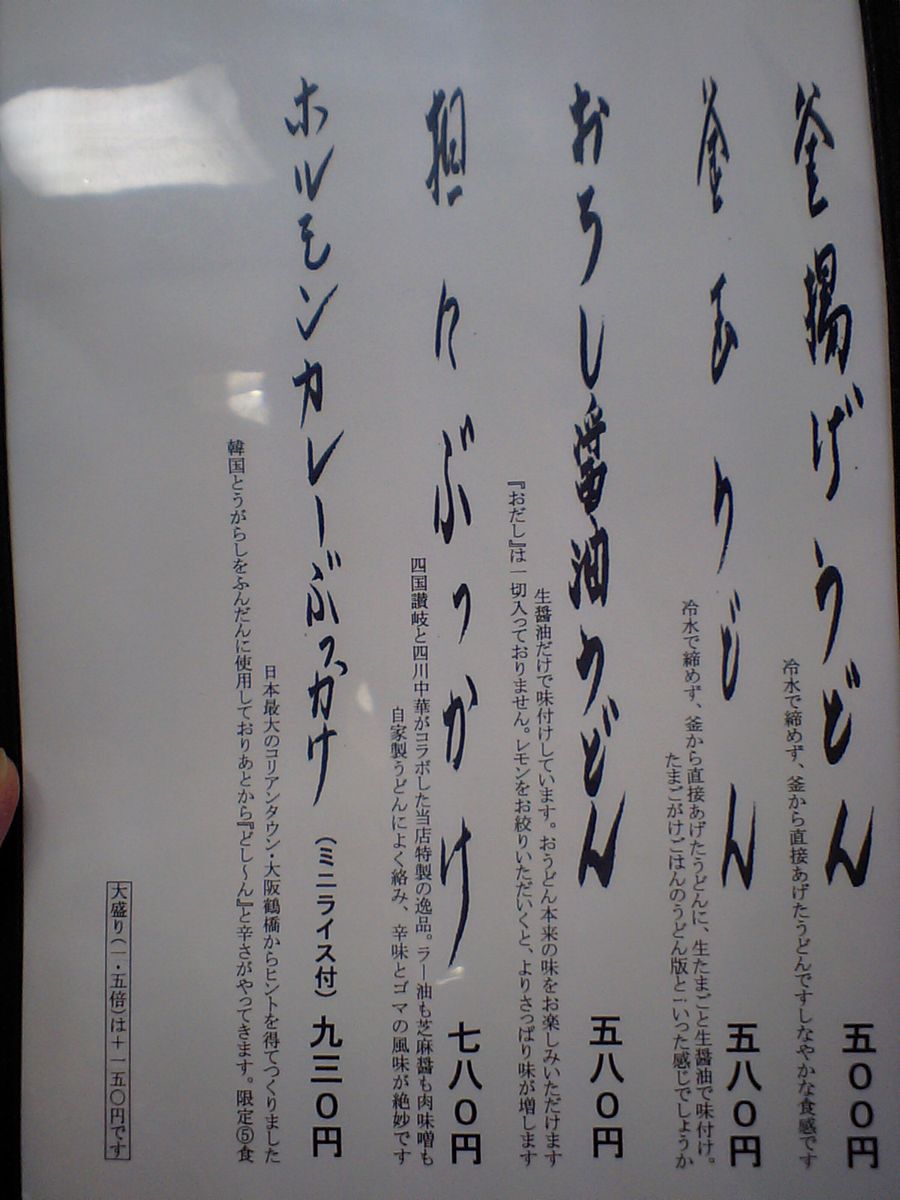 釜揚げうどん 五〇〇円
冷水で締めず、釜から直接あげたうどんですしなやかな食感です
釜玉うどん 五八〇円
冷水で締めず、釜から直接あげたうどんに、生たまごと生醤油で味付け。
たまごがけごはんのうどん版といった感じでしょうか
おろし醤油うどん 五八〇円
生醤油だけで味付けしています。おうどん本来の味をお楽しみいただけます
『おだし』は一切入っておりません。レモンをお絞りいただいくと、よりさっぱり味が増します
担々ぶっかけ 七八〇円
四国讃岐と四川中華がコラボした当店特製の逸品。ラー油も芝麻醤も肉味噌も
自家製うどんによく絡み、辛味とゴマの風味が絶妙です
ホルモンカレーぶっかけ (ミニライス付) 九三〇円
日本最大のコリアンタウン・大阪鶴橋からヒントを得てつくりました
韓国とうがらしをふんだんに使用しておりあとから『どし〜ん』と辛さがやってきます。限定⑤食
大盛り(一・五倍)は+一五〇円です